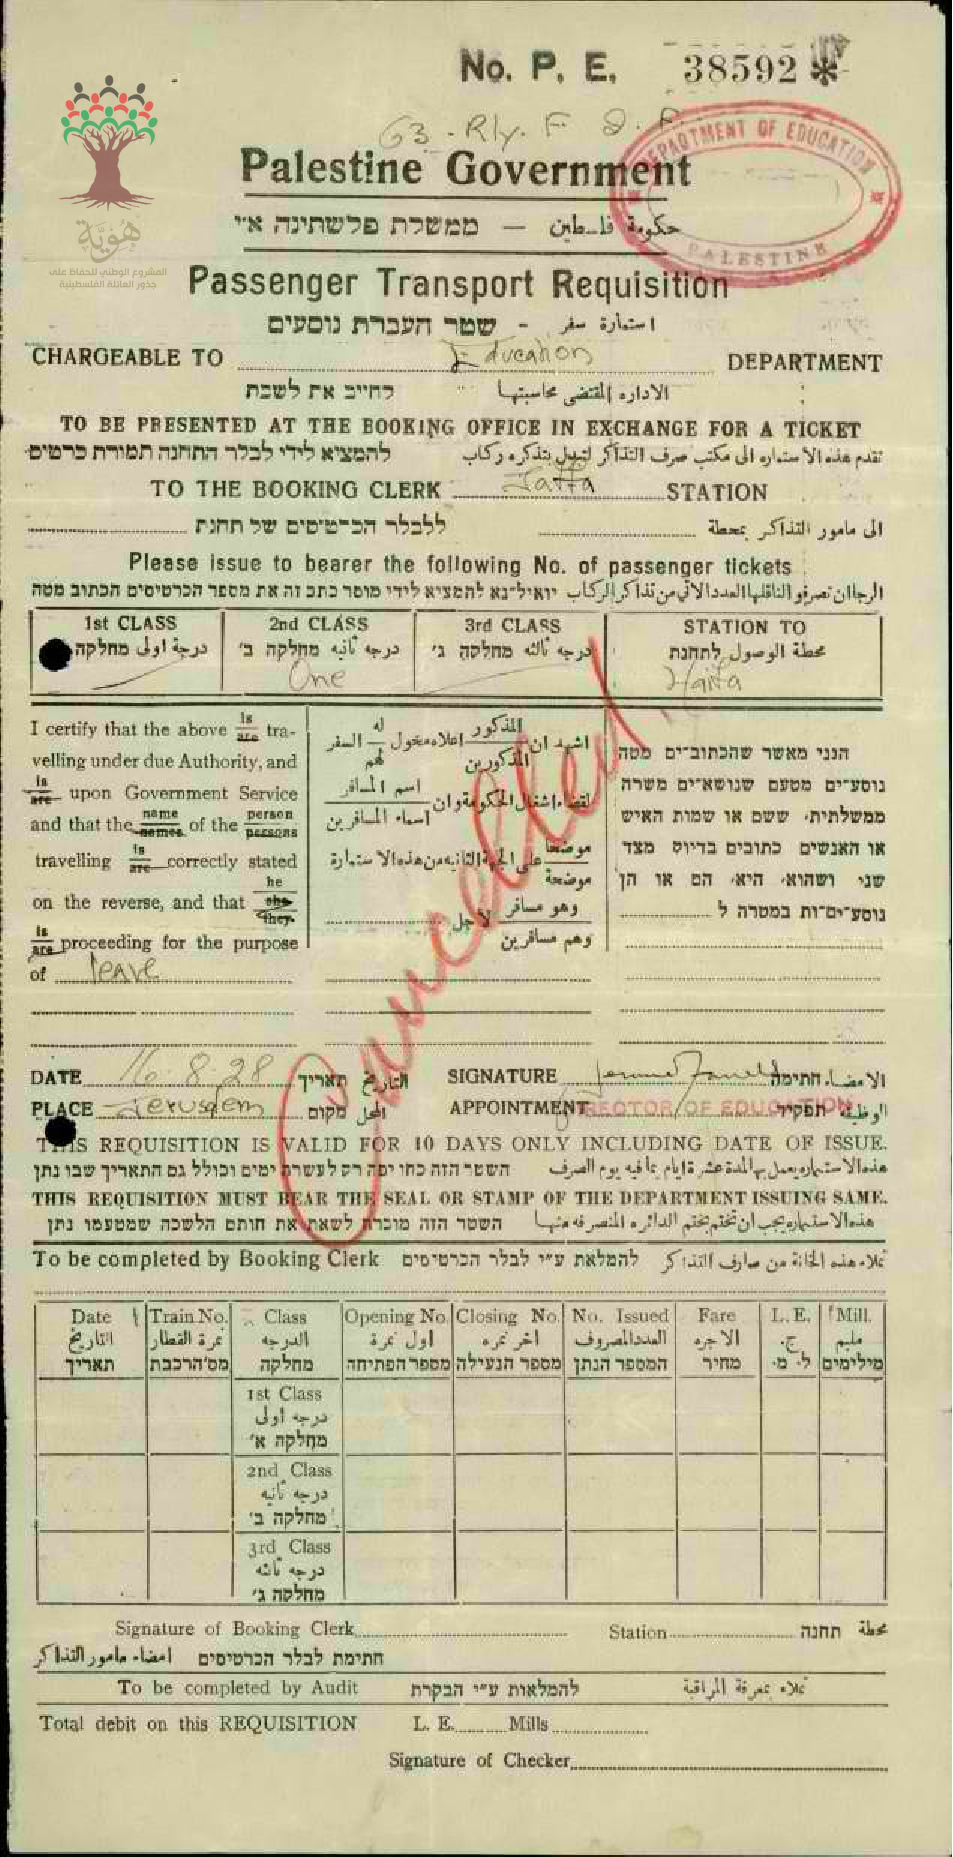 No. P. E. 38592 *
63. Rly. F
DEPARTMENT OF EDUCATION
PALESTINE
Palestine Government
ממשלת פלשתינה א״י — حكومة فلسطين
هوية
المشروع الوطني للحفاظ على
جذور العائلة الفلسطينية
Passenger Transport Requisition
שטר העברת נוסעים - استمارة سفر
CHARGEABLE TO Education DEPARTMENT
לחייב את לשכת الادارة المقتضى محاسبتها
TO BE PRESENTED AT THE BOOKING OFFICE IN EXCHANGE FOR A TICKET
להמציא לידי לבלר התחנה תמורת כרטיס تقدم هذه الاستماره الى مكتب صرف التذاكر لتبدل بتذكره ركاب
TO THE BOOKING CLERK Jaffa STATION
ללבלר הכרטיסים של תחנת الى مامور التذاكر بمحطة
Please issue to bearer the following No. of passenger tickets
יואיל־נא להמציא לידי מוסר כתב זה את מספר הכרטיסים הכתוב מטה الرجا ان تصرفو الناقلها العدد الاتي من تذاكر الركاب
1st CLASS 2nd CLASS 3rd CLASS STATION TO
درجة اولى מחלקה درجه ثانيه מחלקה ב׳ درجه ثالثه מחלקה ג׳ محطة الوصول לתחנת
One Haifa
I certify that the above is/are tra-
velling under due Authority, and
is/are upon Government Service
and that the name/names of the person/persons
travelling is/are correctly stated
on the reverse, and that he/she/they
is/are proceeding for the purpose
of leave
اشهد ان المذكور/المذكورين اعلاه مخول له/لهم السفر
لقضاء اشغال الحكومة وان اسم المسافر/اسماء المسافرين
موضحا/موضحة على الجهة الثانيه من هذه الاستمارة
وهو مسافر/وهم مسافرين لاجل
הנני מאשר שהכתובים מטה
נוסעים מטעם שנושאים משרה
ממשלתית, ששם או שמות האיש
או האנשים כתובים בדיוק מצד
שני ושהוא, היא, הם או הן
נוסעים־ות במטרה ל
Cancelled
DATE 16.8.28 תאריך التاريخ SIGNATURE חתימה الامضاء
PLACE Jerusalem מקום المحل APPOINTMENT DIRECTOR OF EDUCATION תפקיד الوظيفة
THIS REQUISITION IS VALID FOR 10 DAYS ONLY INCLUDING DATE OF ISSUE.
השטר הזה כחו יפה רק לעשרת ימים וכולל גם התאריך שבו נתן هذه الاستماره يعمل بها لمدة عشرة ايام بما فيه يوم الصرف
THIS REQUISITION MUST BEAR THE SEAL OR STAMP OF THE DEPARTMENT ISSUING SAME.
השטר הזה מוכרח לשאת את חותם הלשכה שמטעמו נתן هذه الاستماره يجب ان تختم بختم الدائره المنصرفه منها
To be completed by Booking Clerk להמלאת ע״י לבלר הכרטיסים تملاء هذه الخانة من صارف التذاكر
Date Train No. Class Opening No. Closing No. No. Issued Fare L. E. Mill.
التاريخ نمرة القطار الدرجه اول نمرة اخر نمره العدد المصروف الاجره ج. مليم
תאריך מס׳ הרכבת מחלקה מספר הפתיחה מספר הנעילה המספר הנתן מחיר ל. מ. מילימים
1st Class
درجه اولى
מחלקה א׳
2nd Class
درجه ثانيه
מחלקה ב׳
3rd Class
درجه ثالثه
מחלקה ג׳
Signature of Booking Clerk Station תחנה محطة
חתימת לבלר הכרטיסים امضاء مامور التذاكر
To be completed by Audit להמלאות ע״י הבקרת تملاء بمعرفة المراقبة
Total debit on this REQUISITION L. E. Mills
Signature of Checker